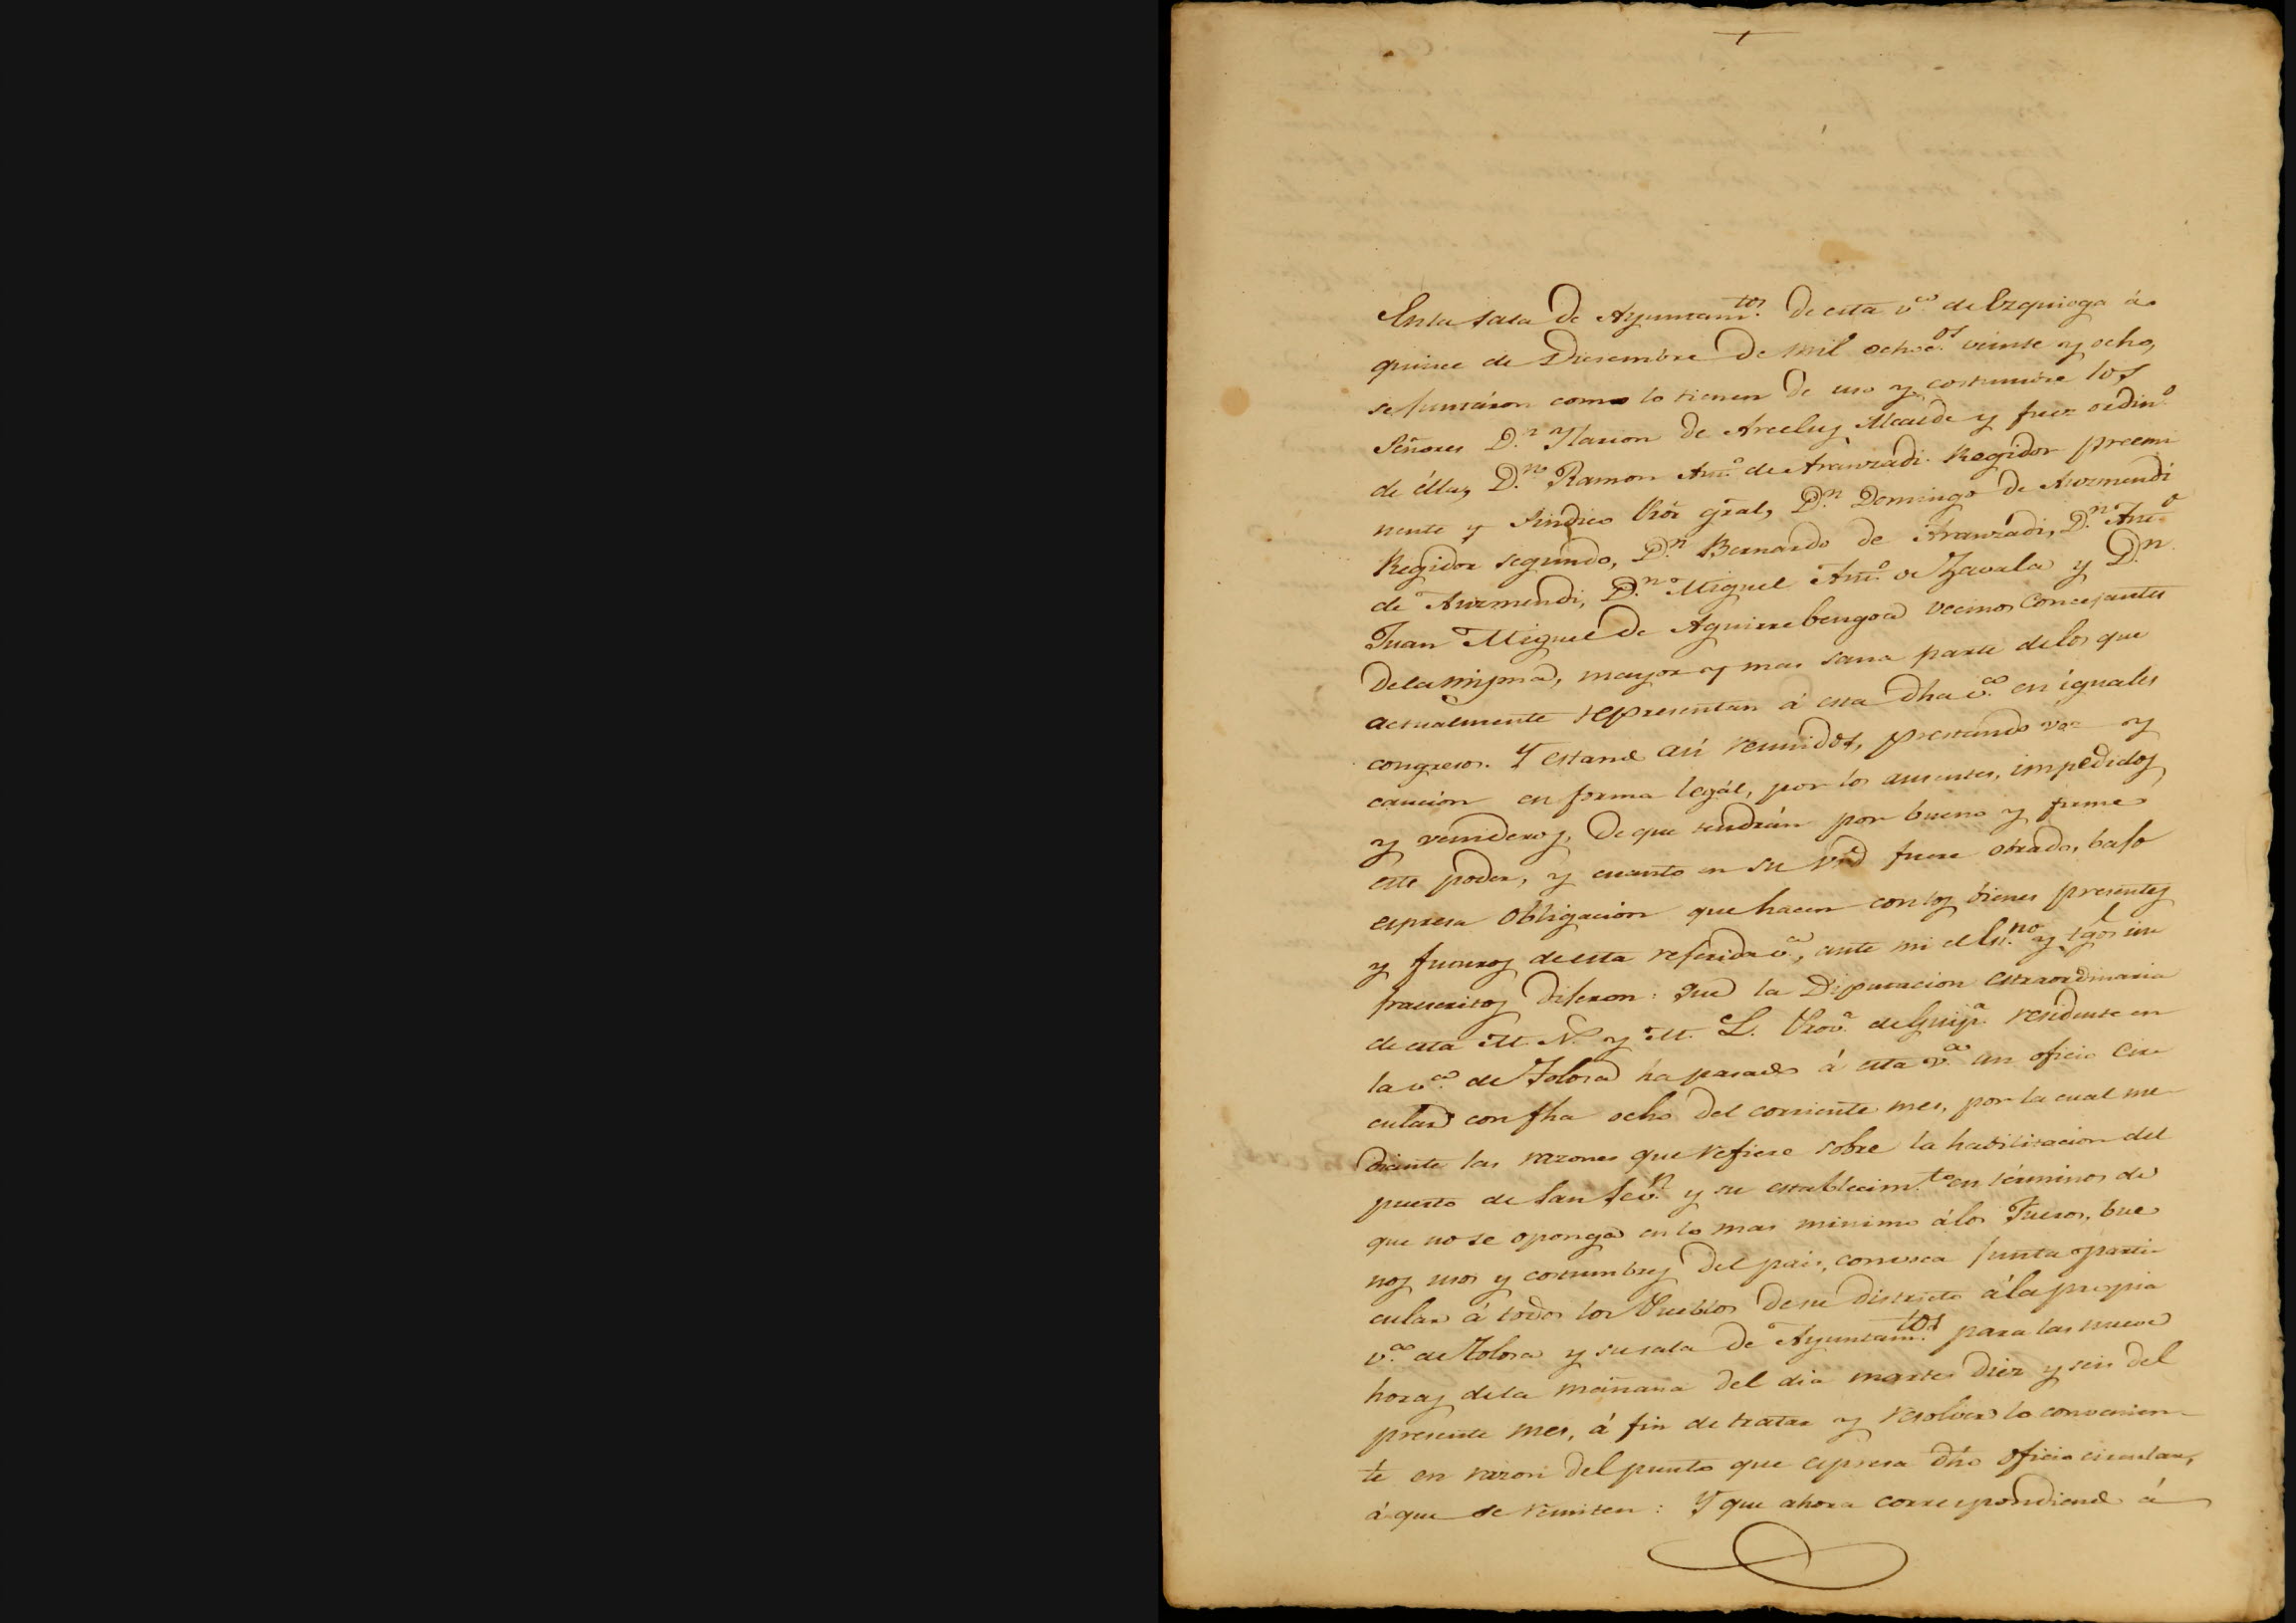 En la sala de Ayuntam.tos de esta v.a de Ezquioga á
quince de Diciembre de mil ochoc.os veinte y ocho,
se juntáron como lo tienen de uso y costumbre los
Señores D.n Ylarion de Arceluz Alcalde y Juez ordin.o
de élla, D.n Ramon Ant.o de Aranzadi Regidor preemi
nente y Sindico Prór gral, D.n Domingo de Auzmendi
Regidor segundo, D.n Bernardo de Aranzadi, D.n Ant.o
de Auzmendi, D.n Miguel Ant.o de Zavala y D.n
Juan Miguel de Aguirrebengoa vecinos Concejantes
de la misma, mayor y mas sana parte de los que
actualmente representan á esta dha v.a en iguales
congresos. Y estand así reunidos, prestando voz y
caución en forma legál, por los ausentes, impedidos,
y venideros, de que tendrán por bueno y firme
este poder, y cuanto en su v̄d fuere obrado, bajo
espresa obligacion que hacen con los bienes presentes
y futuros de esta referida v.a, ante mi el Es.no y tgos in
fraescritos dijeron: Que la Diputacion estraordinaria
de esta M. N. y M. L. Prov.a de Guip.a residente en
la v.a de Tolosa ha pasado á esta v.a un oficio cir
cular con fha ocho del corriente mes, por la cual me
diante las razones que refiere sobre la habilitacion del
puerto de San Seb.n y su establecim.to en términos de
que no se oponga en lo mas minimo á los Fueros, bue
nos usos y costumbres del pais, convoca Junta parti
cular á todos los Pueblos de su distrito á la propia
v.a de Tolosa y su sala de Ayuntam.tos para las nueve
horas de la mañana del dia martes diez y seis del
presente mes, á fin de tratar y resolver lo convenien-
te en razon del punto que espresa dho oficio circular,
á que se remiten: Y que ahora correspondiend á